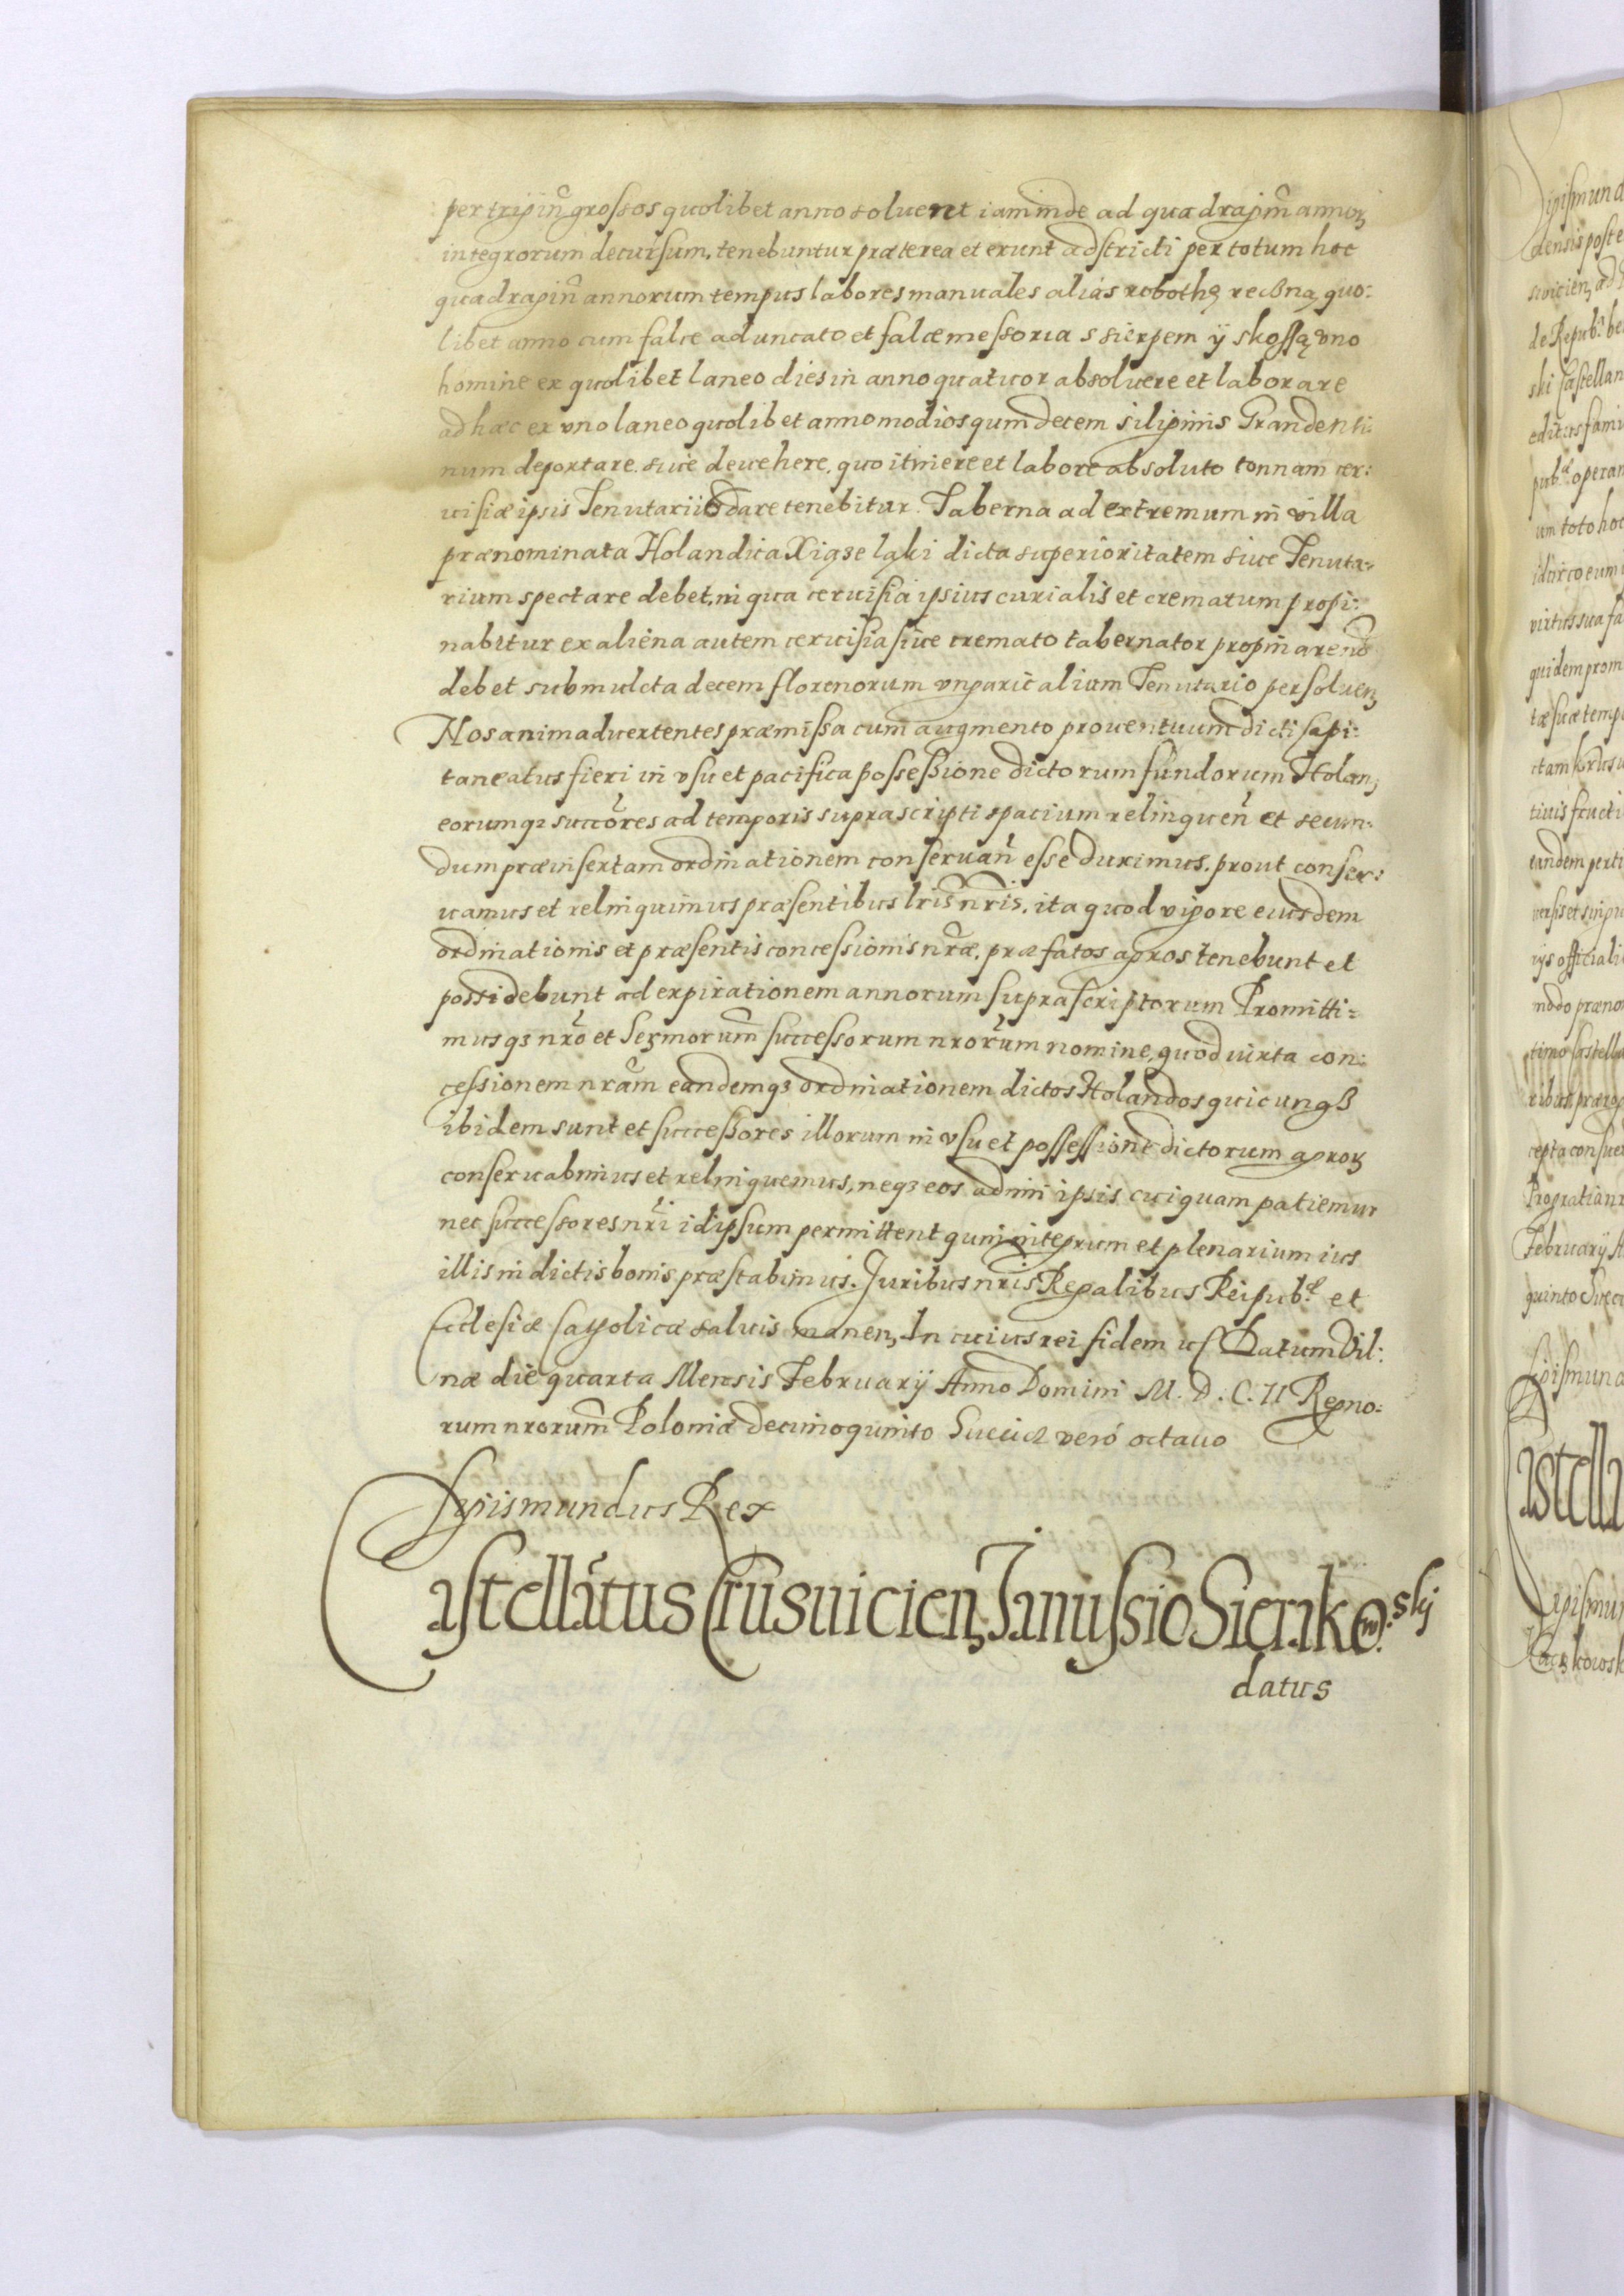 per trigin̄ grossos quolibet anno soluent iam inde ad quadragin̄ annoꝝ
integrorum decursum, tenebuntur præterea et erunt adstricti per totum hoc
quadragin̄ annorum tempus labores manuales alias robothę recżną, quo:
libet anno cum falce aduncato et falce messoria s sierpem ÿ skossą vno
homine ex quolibet laneo dies in anno quatuor absoluere et laborare
ad hæc ex vno laneo quolibet anno modios quindecem siliginis Graudenti:
num deportare siue deuehere, quo itinere et labore absoluto tonnam cer:
uisiæ ipsis Tenutarii dare tenebitur. Taberna ad extremum in villa
prænominata Holandica Xiąze łąki dicta superioritatem siue Tenuta:
rium spectare debet, in qua ceruisia ipsius curialis et crematum propi:
nabitur ex aliena autem ceruisia siue cremato tabernator propinare nō
debet sub mulcta decem florenorum vngaricalium Tenutario persoluen,
Nos animaduertentes præmissa cum augmento prouentuum dicti Capi:
taneatus fieri in vsu et pacifica possessione dictorum fundorum Holan,
eorumqꝫ succōres ad temporis suprascripti spacium relinquen̄ et secun:
dum præinsertam ordinationem conseruan̄ esse duximus, prout conser:
uamus et relinquimus præsentibus lris nris, ita quod vigore eiusdem
ordinationis et præsentis concessionis nræ, præfatos agros tenebunt et
possidebunt ad expirationem annorum suprascriptorum Promitti:
musqꝫ nrō et Sermorum successorum nrorum nomine, quod iuxta con:
cessionem nram eandemqꝫ ordinationem dictos Holandos quicunqꝫ
ibidem sunt et successores illorum in vsu et possessione dictorum agroꝝ
conseruabimus et relinquemus, neqꝫ eos adimi ipsis cuiquam patiemur
nec successores nri id ipsum permittent quin integrum et plenarium ius
illis in dictis bonis præstabimus. Iuribus nris Regalibus Reipub: et
Ecclesiæ Catolicæ saluis manen, In cuius rei fidem Datum Vil:
næ die quarta Mensis Februarÿ Anno Domini M. D. C. II Regno:
rum nrorum Poloniæ decimo quinto Sueciæ veró octauo
Sigismundus Rex
Castellātus Crusuicien, Janussio Sierakow:skÿ
datus